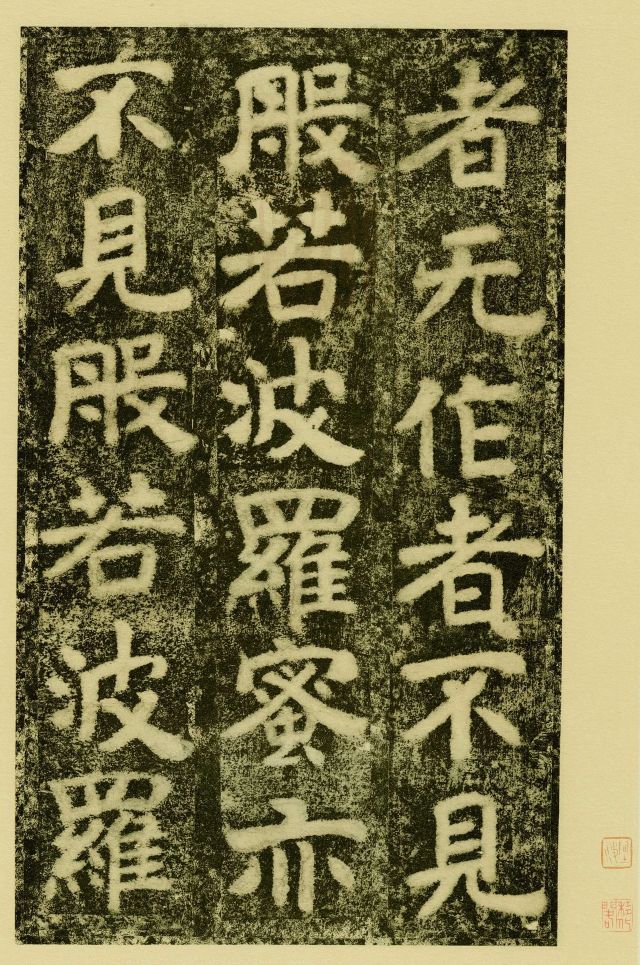 者无作者不見
般若波羅蜜亦
不見般若波羅